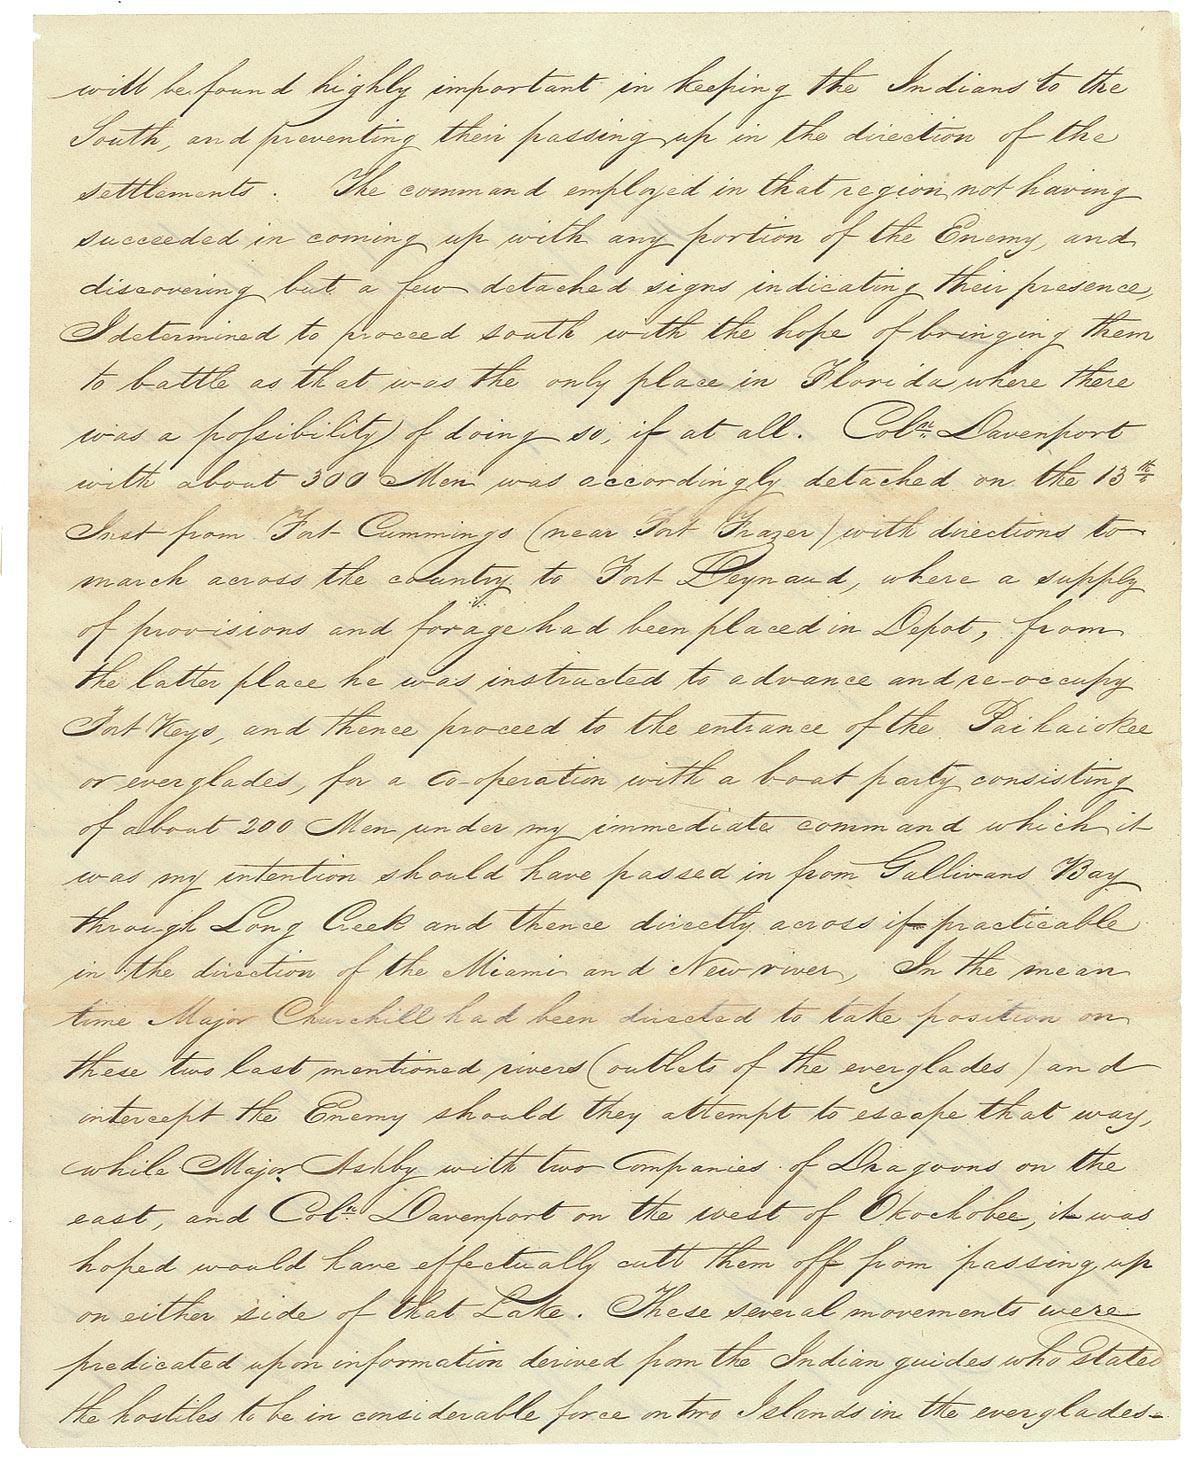 will be found highly important in keeping the Indians to the
South, and preventing their passing up in the direction of the
settlements. The command employed in that region, not having
succeeded in coming up with any portion of the Enemy, and
discovering but a few detached signs indicating their presence,
I determined to proceed south with the hope of bringing them
to battle as that was the only place in Florida where there
was a possibility of doing so, if at all. Coln. Davenport
with about 300 Men was accordingly detached on the 13th
Inst from Fort Cummings (near Fort Frazer) with directions to
march across the country to Fort Deynaud, where a supply
of provisions and forage had been placed in Depot, from
the latter place he was instructed to advance and re-occupy
Fort Keys, and thence proceed to the entrance of the Paihaiokee
or everglades, for a co-operation with a boat party consisting
of about 200 Men under my immediate command which it
was my intention should have passed in from Gallivans Bay
through Long Creek and thence directly across if practicable
in the direction of the Miami and New river, In the mean
time Major Churchill had been directed to take position on
these two last mentioned rivers (outlets of the everglades) and
intercept the Enemy should they attempt to escape that way,
while Major Ashby with two Companies of Dragoons on the
east, and Coln. Davenport on the west of Okochobee, it was
hoped would have effectually cutt them off from passing up
on either side of that Lake. These several movements were
predicated upon information derived from the Indian guides who stated
the hostiles to be in considerable force on two Islands in the everglades-